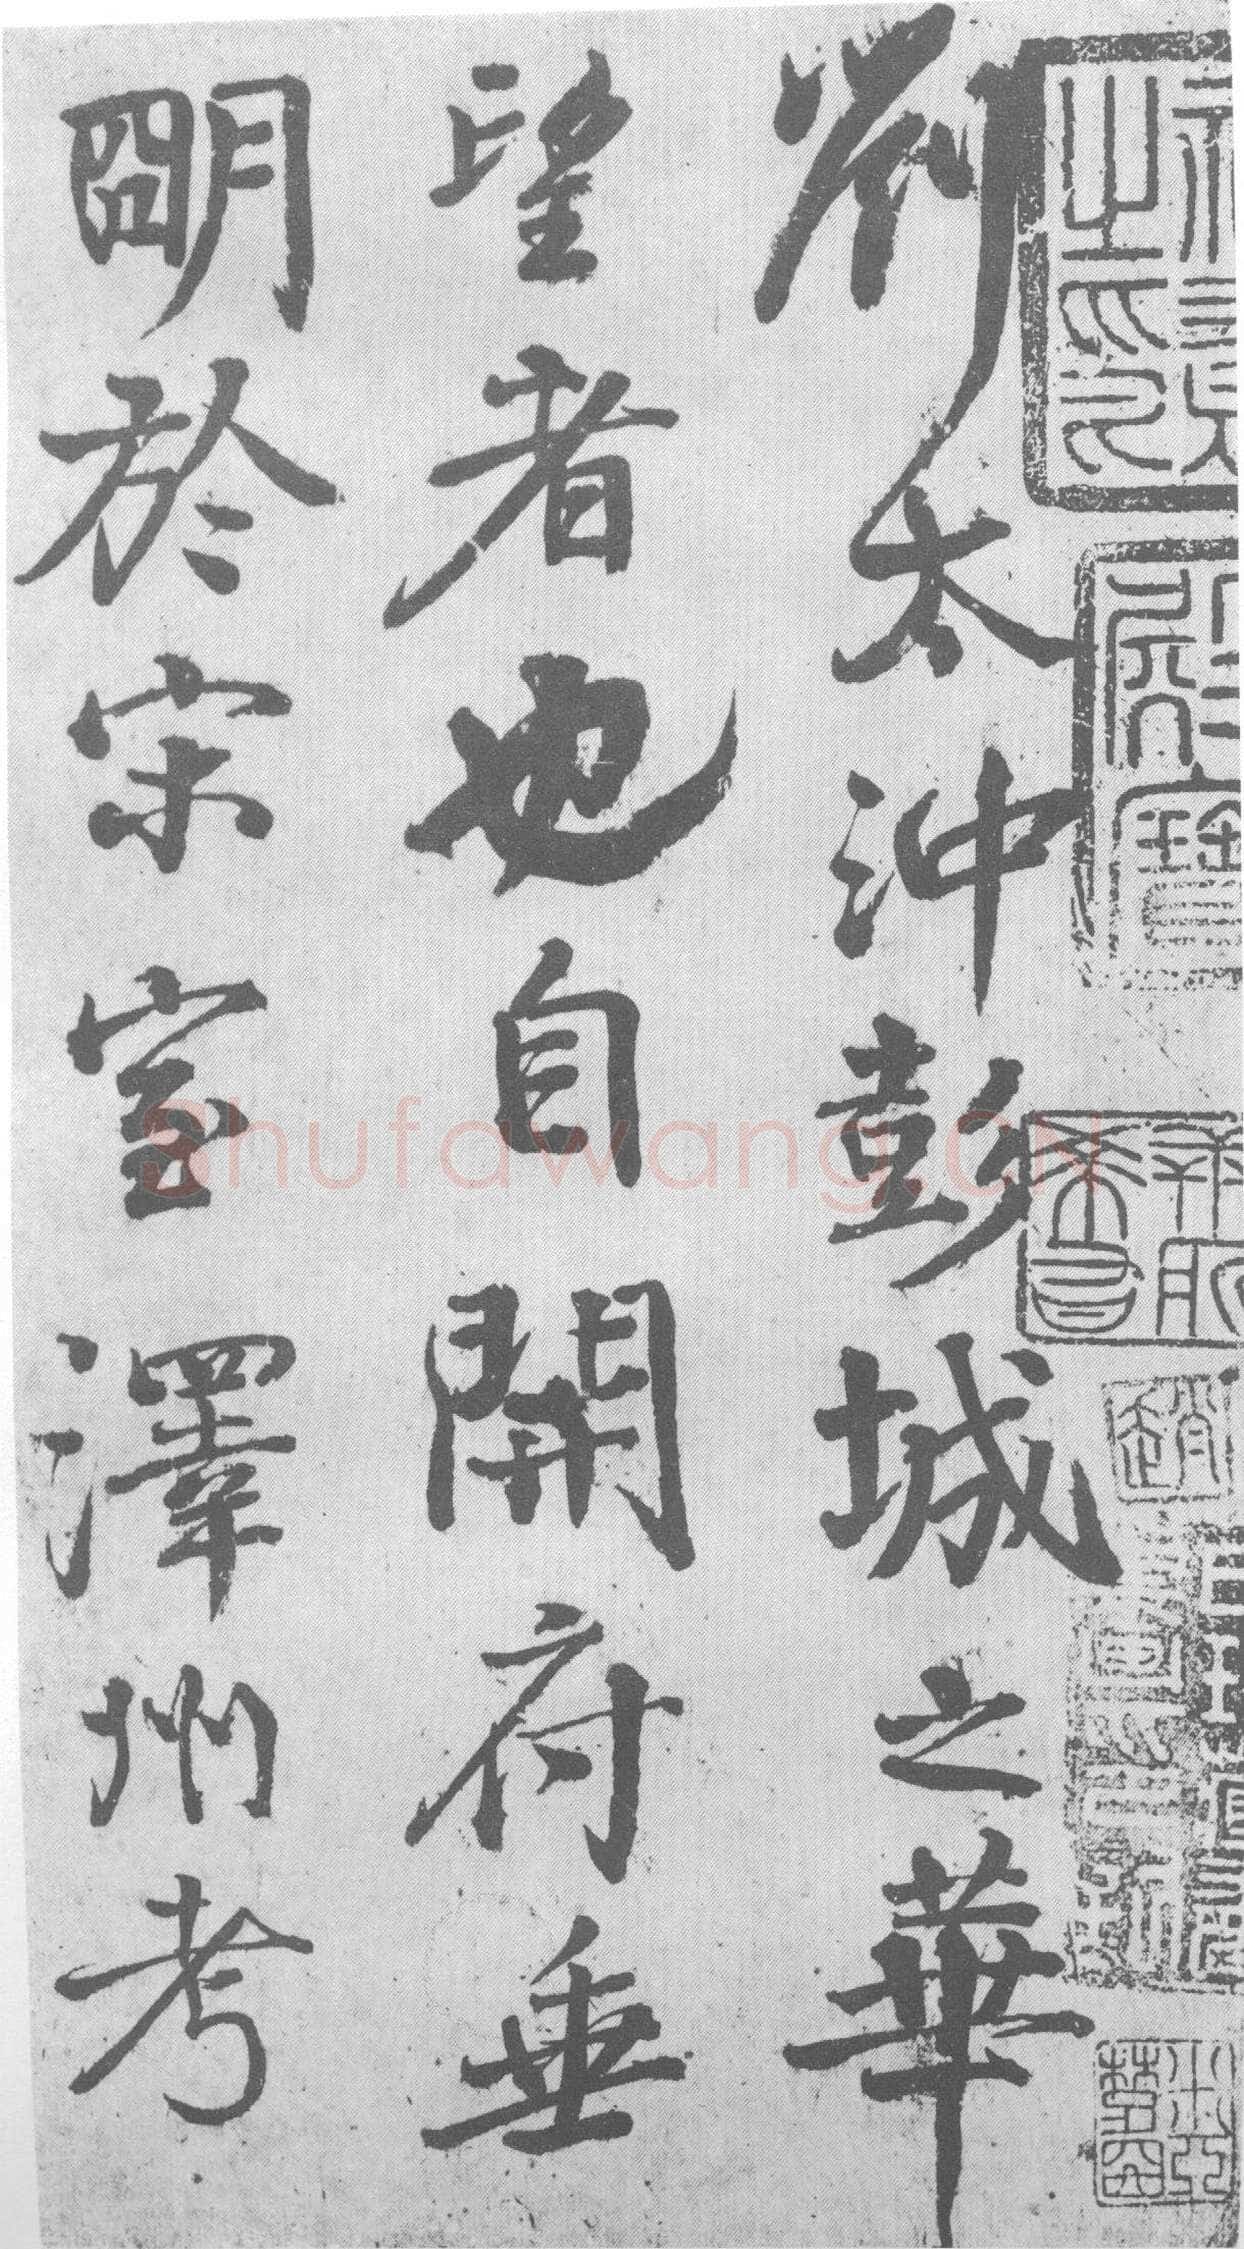 劉太沖彭城之華
望者也自開府垂
明於宋室澤州考
Shufawang.CN